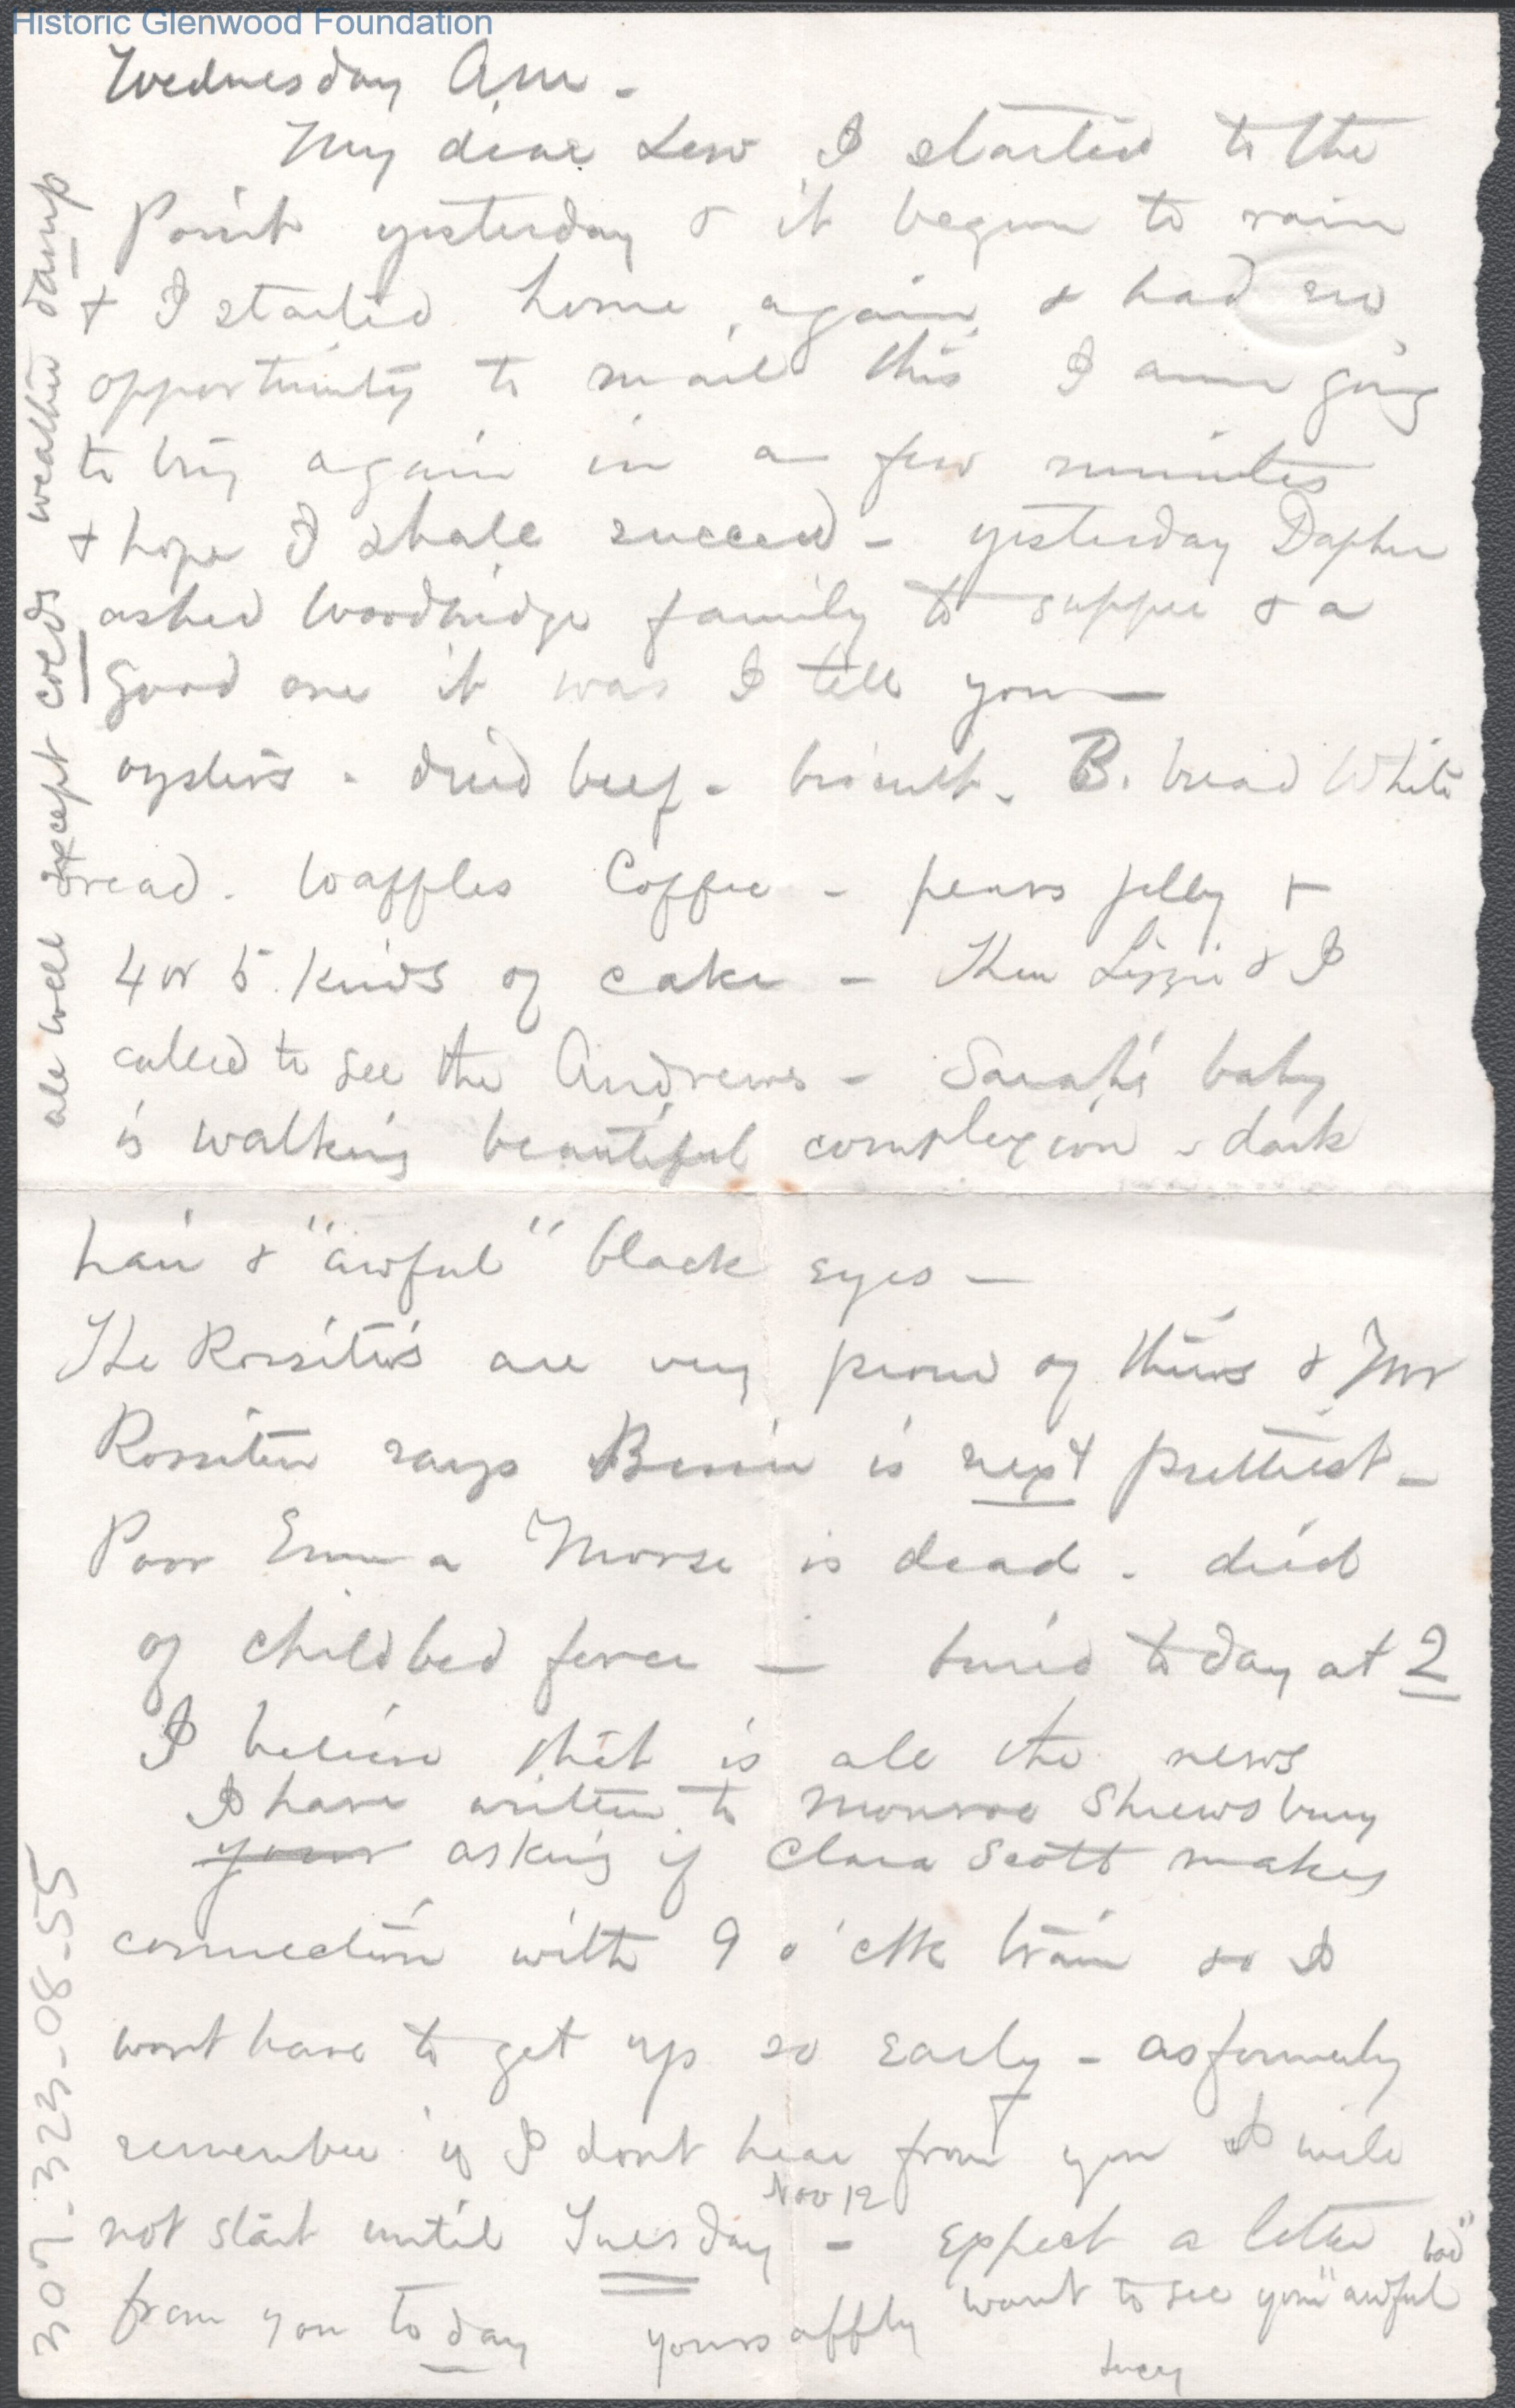 Historic Glenwood Foundation
Wednesday Am -
My dear Lew I started to the
Point yesterday & it begun to rain
& I started home again & had no
opportunity to mail this I am going
to try again in a few minutes
& hope I shall succeed - yesterday Daphne
asked Woodbridge family to supper & a
good one it was I tell you -
oysters - dried beef - biscuit - B. bread White
bread. Waffles Coffee - pears jelly &
4 or 5 kinds of cake - Then Lizzie & I
called to see the Andrews - Sarah's baby
is walking beautiful complexion & dark
hair & "awful" black eyes -
The Rossiters are very proud of theirs & Mr
Rossiter says Bessie is next prettiest -
Poor Emma Morse is dead - died
of childbed fever - buried today at 2
I believe that is all the news
I have written to Monroe Shrewsbury
asking if Clara Scott makes
connection with 9 o'clk train so I
wont have to get up so early - as formerly
remember if I dont hear from you I will
not start until Tuesday - expect a letter
Nov 12
from you today yours affly
want to see you "awful bad"
Lucy
all well except colds weather damp
307-323-08-55